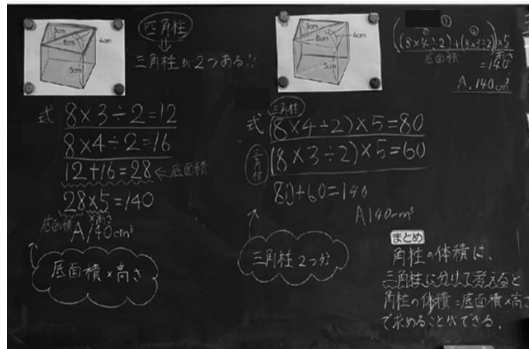 3cm
8cm
4cm
5cm
四角柱
三角柱が2つある!!
式 8×3÷2=12
8×4÷2=16
12+16=28 ←底面積
28×5=140
底面積 高さ
A,140cm³
底面積×高さ
3cm
8cm
4cm
5cm
三角柱
式 (8×4÷2)×5=80
三角柱
(8×3÷2)×5=60
80+60=140
A140cm³
三角柱2つ分
((8×4÷2)+(8×3÷2))×5
底面積
=140
A.140cm³
まとめ
角柱の体積は、
三角柱に分けて考えると
角柱の体積=底面積×高さ
で求めることができる。